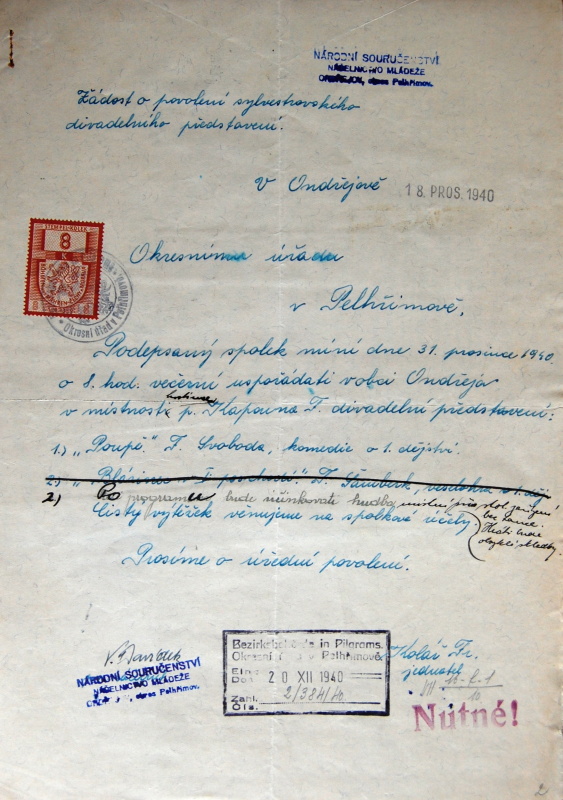 NÁRODNÍ SOURUČENSTVÍ
NÁČELNICTVO MLÁDEŽE
okres Pelhřimov.
Žádost o povolení sylvestrovského
divadelního představení.
V Ondřejově
18. PROS. 1940
STEMPEL-KOLEK
8
K
Okresní úřad v Pelhřimově
Okresnímu úřadu
v Pelhřimově,
Podepsaný spolek míní dne 31. prosince 1940
o 8. hod. večerní uspořádati v obci Ondřeja
hostince
v místnosti p. Klapauna F. divadelní představení:
1.) „Poupě." F. Svoboda, komedie o 1. dějství.
2.) I. poschodí." F. Šamberk, veselohra o 1. děj.
2.) Po programu bude účinkovati hudba, místní při stol. zařízení
bez tance.
Čistý výtěžek věnujeme na spolkové účely.
Hráti bude
obvyklé skladby.
Prosíme o úřední povolení.
NÁRODNÍ SOURUČENSTVÍ
NÁČELNICTVO MLÁDEŽE
okres Pelhřimov.
Bezirksbehörde in Pilgrams.
Okresní úřad v Pelhřimově.
Eing.
Došlo
20 XII 1940
Zahl.
Čís.
2/384/40
Kolář Fr.
jednatel
Nutné!
2